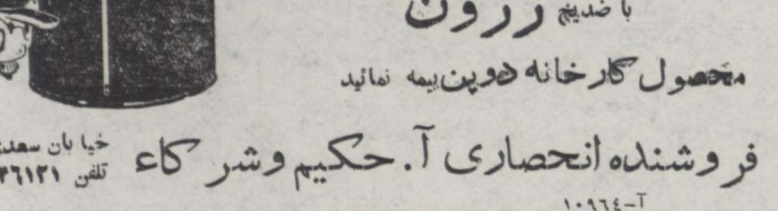 با ضدیخ زرون
محصول کارخانه دوپن بیمه نمائید
فروشنده انحصاری آ. حکیم و شرکاء
خیابان سعدی
تلفن ۳۶۱۳۱
آ-۱۰۹۶۴